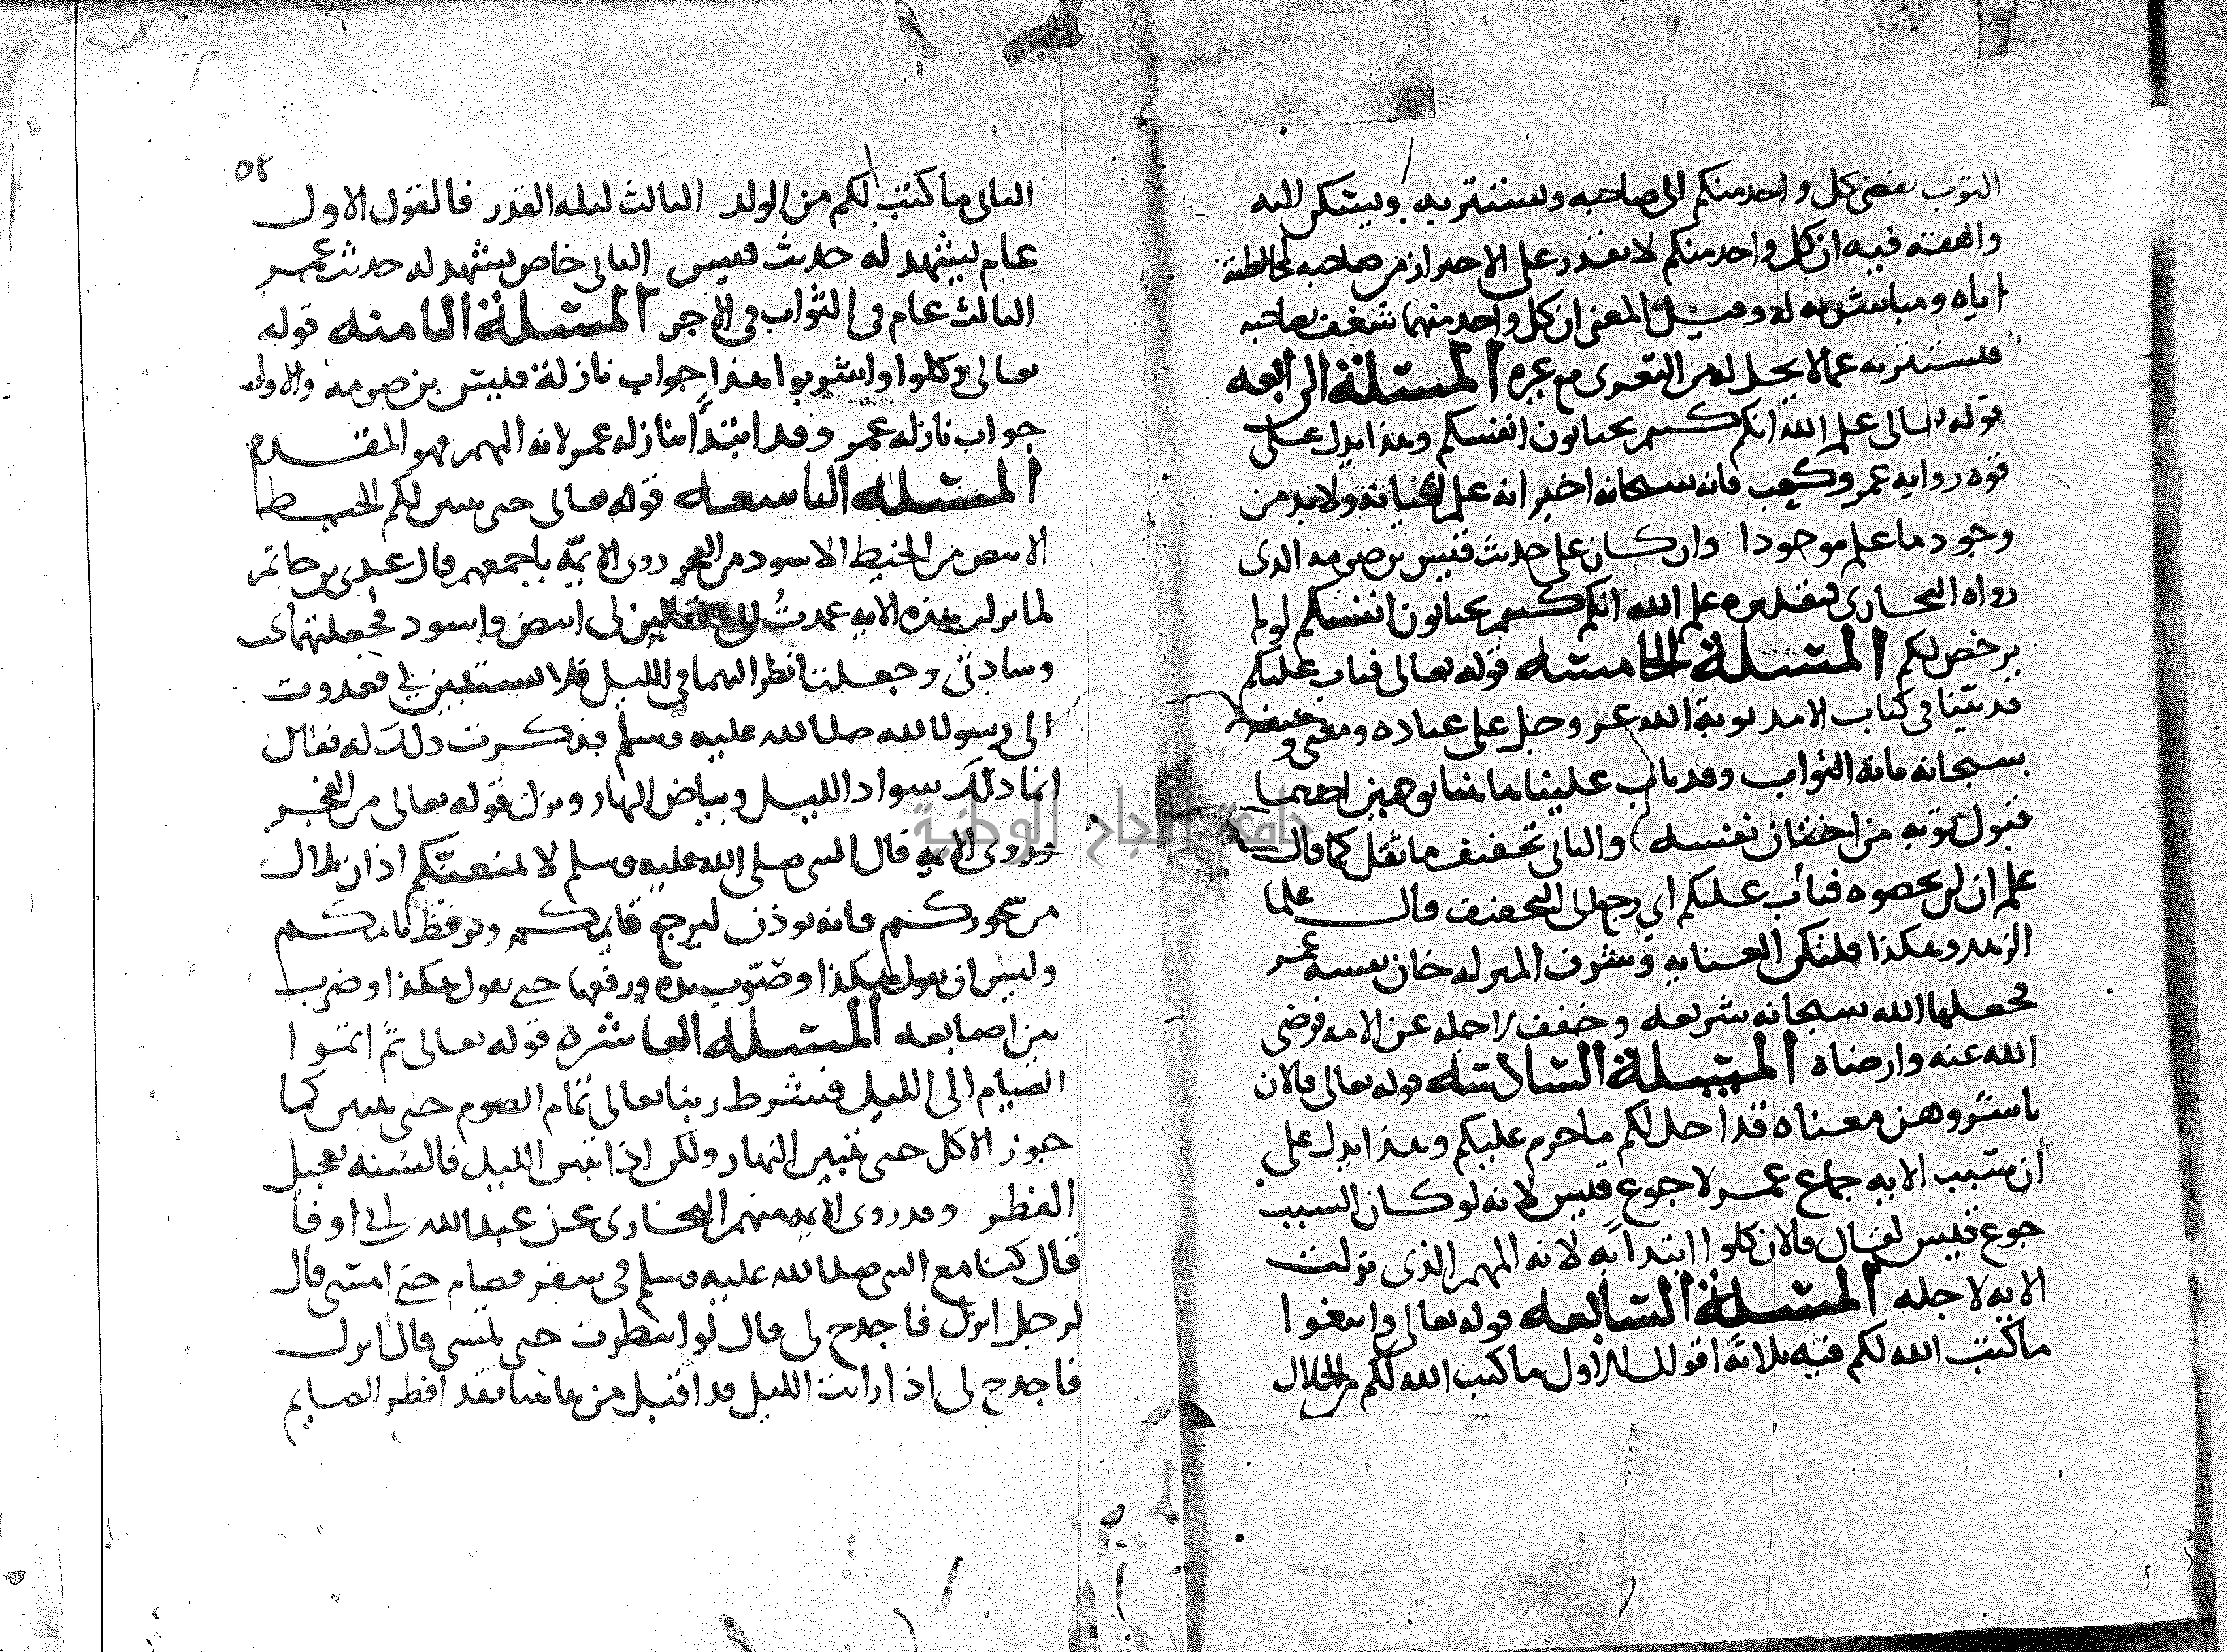 الثوب يفضي كل واحد منكم الى صاحبه ويستتر به ويسكن اليه
والفقه فيه ان كل واحد منكم لا يقدر على الاحتراز من صاحبه لمخالطته
اياه ومباشرته له وقيل المعنى ان كل واحد منهما متعفف بصاحبه
فيستتر به عما لا يحل له من التعري مع غيره المسئلة الرابعه
قوله تعالى علم الله انكم كنتم تختانون انفسكم وهذا يدل على
قوه روايه عمر وكعب فانه سبحانه اخبر انه علم الخيانة ولا بد من
وجود ما علم موجودا وان كان على حديث قيس بن صرمه الذى
رواه البخارى فتقديره علم الله انكم كنتم تختانون انفسكم لو لم
يرخص لكم المسئلة الخامسه قوله تعالى فتاب عليكم
قد بينا فى كتاب الامد توبة الله عز وجل على عباده ومعنى وصفه
سبحانه بانه التواب وقد تاب علينا هاهنا بوجهين احدهما
قبول توبه من اختان نفسه والثانى تخفيف ما ثقل كما قال
علم ان لن تحصوه فتاب عليكم اي رجع الى التخفيف قال علما
الزهد وهكذا فلتكن العنايه وشرف المنزله خان نفسه عمر
فجعلها الله سبحانه شريعه وخفف لاجله عن الامه فرضى
الله عنه وارضاه المسئلة السادسه قوله تعالى فالان
باشروهن معناه قد احل لكم ما حرم عليكم وهذا يدل على
ان سبب الايه جماع عمر لا جوع قيس لانه لو كان السبب
جوع قيس لقال فالان كلوا ابتدا به لانه المهم الذى نزلت
الايه لاجله المسئلة السابعه قوله تعالى وابتغوا
ما كتب الله لكم فيه ثلاثة اقوال الاول ما كتب الله لكم من الحلال
٥٢
الثانى ما كتب لكم من الولد الثالث ليله القدر فالقول الاول
عام يشهد له حديث قيس الثانى خاص يشهد له حديث عمر
الثالث عام فى الثواب فى الاجر المسئلة الثامنه قوله
تعالى وكلوا واشربوا هذا جواب نازلة قيس بن صرمه والاول
جواب نازله عمر وقد ابتدأ بنازله عمر لانه المهم فهو المقدم
المسئله التاسعه قوله تعالى حتى يتبين لكم الخيط
الابيض من الخيط الاسود من الفجر روى الايمّة باجمعهم قال عدى بن حاتم
لما نزلت هذه الايه عمدتُ الى عقالين لى ابيض واسود فجعلتهما تحت
وسادتى وجعلت انظر اليهما فى الليل فلا يستبين لى فغدوت
الى رسول الله صلى الله عليه وسلم فذكرت ذلك له فقال
انما ذلك سواد الليل وبياض النهار ونزل قوله تعالى من الفجر
وروى الايمه قال النبى صلى الله عليه وسلم لا يمنعنّكم اذان بلال
من سحوركم فانه يوذن ليرجع قايمكم ويوقظ نايمكم
وليس ان يقول هكذا وصوّب يده ورفعها حتى يقول هكذا وضرب
بين اصابعه المسئله العاشره قوله تعالى ثم اتموا
الصيام الى الليل فشرط ربنا تعالى تمام الصوم حتى يتبين كما
جوز الاكل حتى يتبين النهار ولكن اذا تبين الليل فالسنه تعجيل
الفطر وقد روى الايمه منهم البخارى عن عبد الله بن ابى اوفا
قال كنا مع النبى صلى الله عليه وسلم فى سفر فصام حتى امسى قال
لرجل انزل فاجدح لى قال لو انتظرت حتى تمسى قال انزل
فاجدح لى اذا رايت الليل قد اقبل من هاهنا فقد افطر الصايم
جامعة النجاح الوطنية